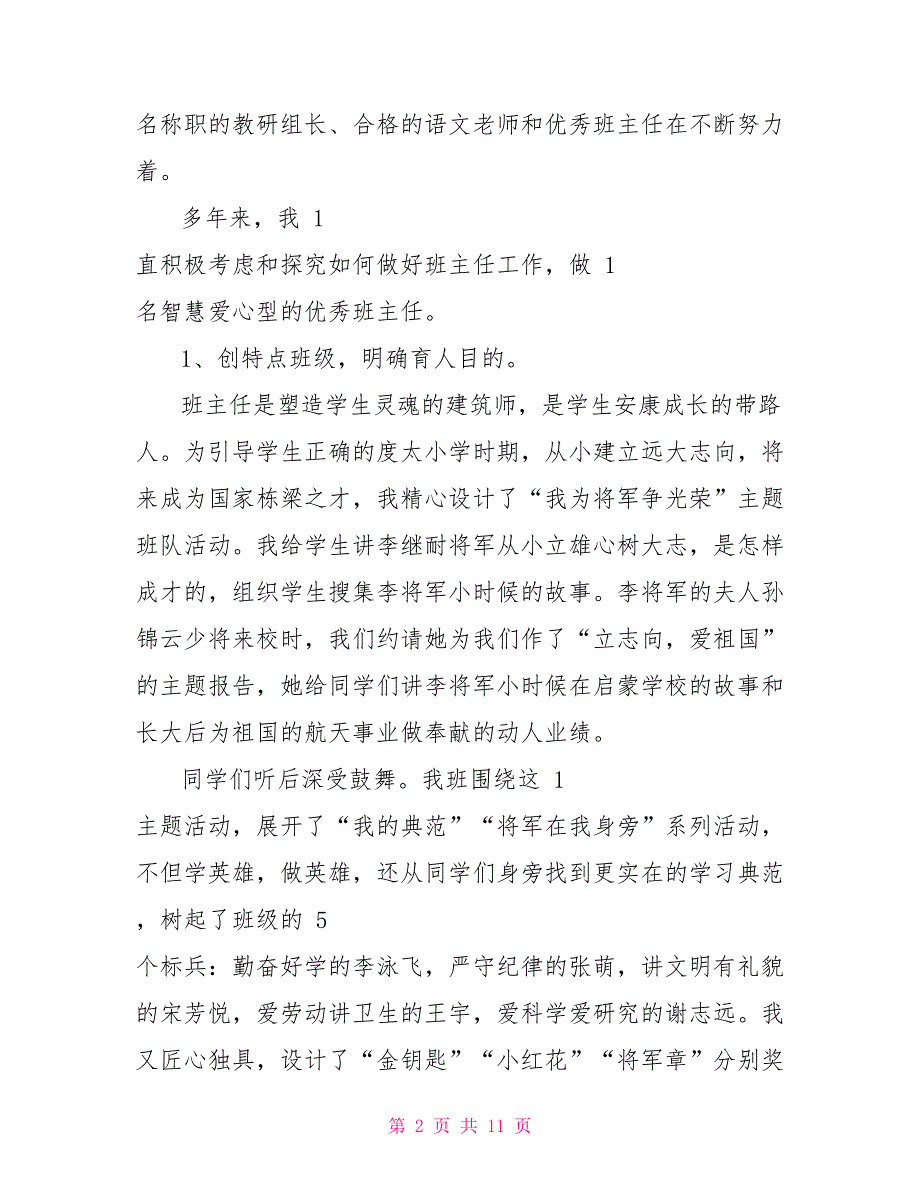 名称职的教研组长、合格的语文老师和优秀班主任在不断努力
着。
多年来，我 1
直积极考虑和探究如何做好班主任工作，做 1
名智慧爱心型的优秀班主任。
1、创特点班级，明确育人目的。
班主任是塑造学生灵魂的建筑师，是学生安康成长的带路
人。为引导学生正确的度太小学时期，从小建立远大志向，将
来成为国家栋梁之才，我精心设计了“我为将军争光荣”主题
班队活动。我给学生讲李继耐将军从小立雄心树大志，是怎样
成才的，组织学生搜集李将军小时候的故事。李将军的夫人孙
锦云少将来校时，我们约请她为我们作了“立志向，爱祖国”
的主题报告，她给同学们讲李将军小时候在启蒙学校的故事和
长大后为祖国的航天事业做奉献的动人业绩。
同学们听后深受鼓舞。我班围绕这 1
主题活动，展开了“我的典范”“将军在我身旁”系列活动，
不但学英雄，做英雄，还从同学们身旁找到更实在的学习典范
，树起了班级的 5
个标兵：勤奋好学的李泳飞，严守纪律的张萌，讲文明有礼貌
的宋芳悦，爱劳动讲卫生的王宇，爱科学爱研究的谢志远。我
又匠心独具，设计了“金钥匙”“小红花”“将军章”分别奖
第 2 页 共 11 页